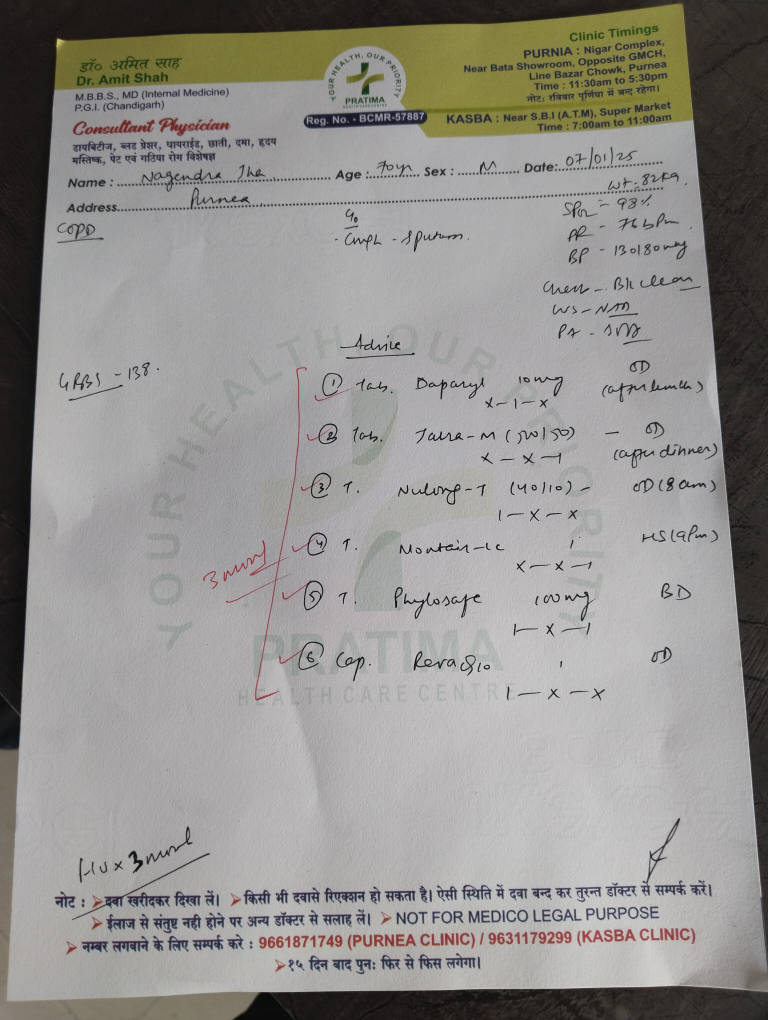 डॉ० अमित साह
Dr. Amit Shah
M.B.B.S., MD (Internal Medicine)
P.G.I. (Chandigarh)
Consultant Physician
डायबिटीज, ब्लड प्रेशर, थायराईड, छाती, दमा, हृदय
मस्तिष्क, पेट एवं गठिया रोग विशेषज्ञ
YOUR HEALTH, OUR PRIORITY
PRATIMA
HEALTH CARE CENTRE
Reg. No. - BCMR-57887
Clinic Timings
PURNIA : Nigar Complex,
Near Bata Showroom, Opposite GMCH,
Line Bazar Chowk, Purnea
Time : 11:30am to 5:30pm
नोट: रविवार पूर्णिया में बन्द रहेगा।
KASBA : Near S.B.I (A.T.M), Super Market
Time : 7:00am to 11:00am
Name : Nagendra Jha Age : 70yr Sex : M Date: 07/01/25
Address Purnea
Wt - 82kg.
COPD
C/o
- Cough - Sputum.
SPO2 - 98%
PR - 76 bpm.
BP - 130/80
Chest - B/L clear
PA -
Advice
GRBS - 138.
1 Tab. Daparyl 10mg OD
x-1-x (after lunch)
2 Tab. (500/50) - OD
x-x-1 (after dinner)
3 T. Nulong-T (40/10) - OD (8am)
1-x-x
4 T. Montair-LC HS (9pm)
x-x-1
5 T. Phylosafe 100mg BD
1-x-1
6 Cap. OD
1-x-x
YOUR HEALTH, OUR PRIORITY
PRATIMA
HEALTH CARE CENTRE
नोट : दवा खरीदकर दिखा लें। किसी भी दवासे रिएक्शन हो सकता है। ऐसी स्थिति में दवा बन्द कर तुरन्त डॉक्टर से सम्पर्क करें।
ईलाज से संतुष्ट नही होने पर अन्य डॉक्टर से सलाह लें। NOT FOR MEDICO LEGAL PURPOSE
नम्बर लगवाने के लिए सम्पर्क करे : 9661871749 (PURNEA CLINIC) / 9631179299 (KASBA CLINIC)
१५ दिन बाद पुनः फिर से फिस लगेगा।